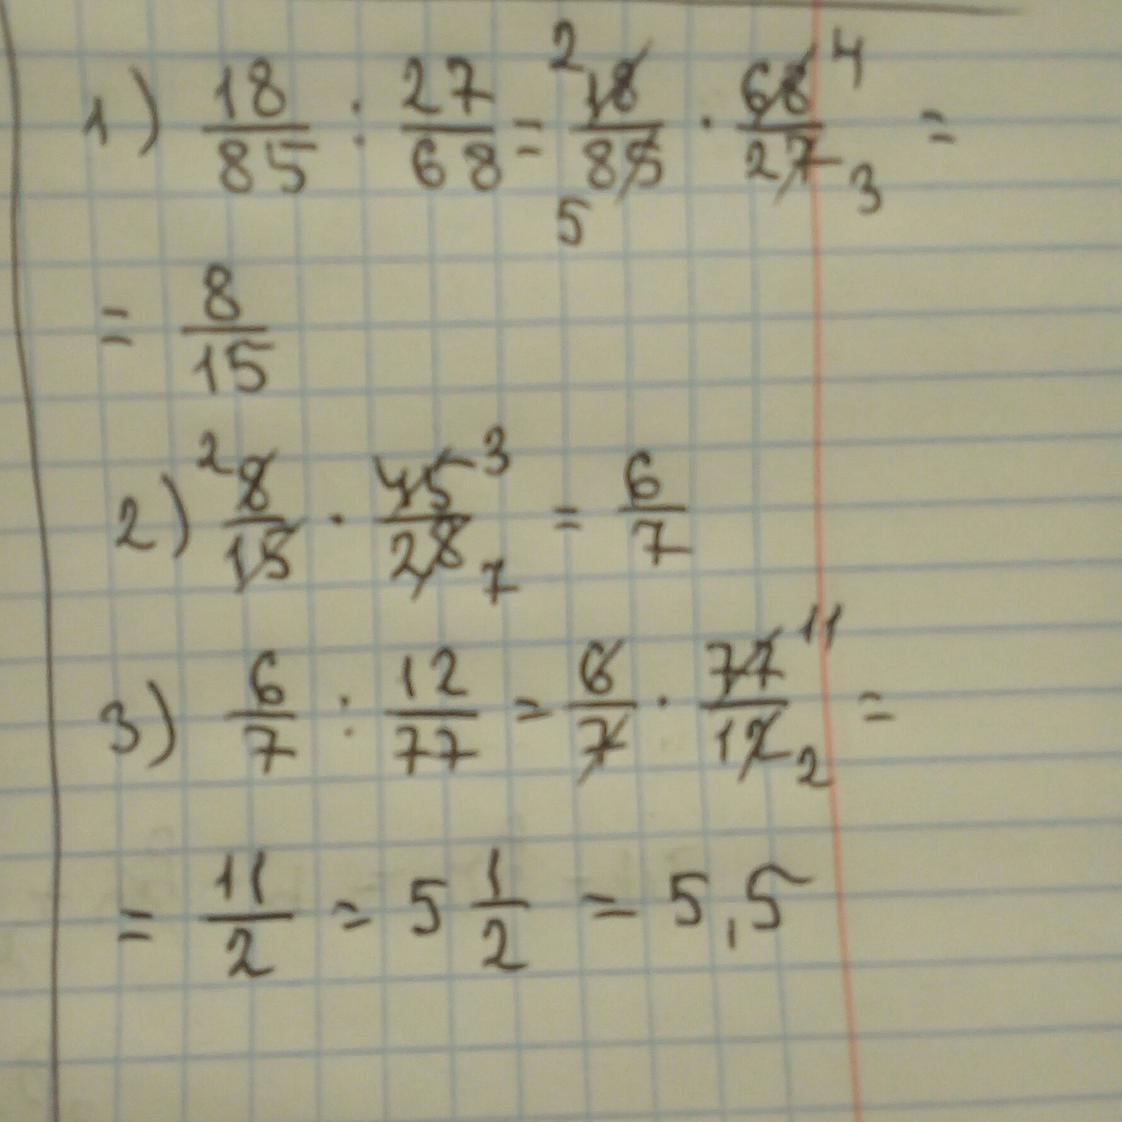 1) 18/85 : 27/68 = ²18/85₅ · 68⁴/27₃ =
= 8/15
2) ²8/15 · 45³/28₇ = 6/7
3) 6/7 : 12/77 = 6/7 · 77¹¹/12₂ =
= 11/2 = 5 1/2 = 5,5